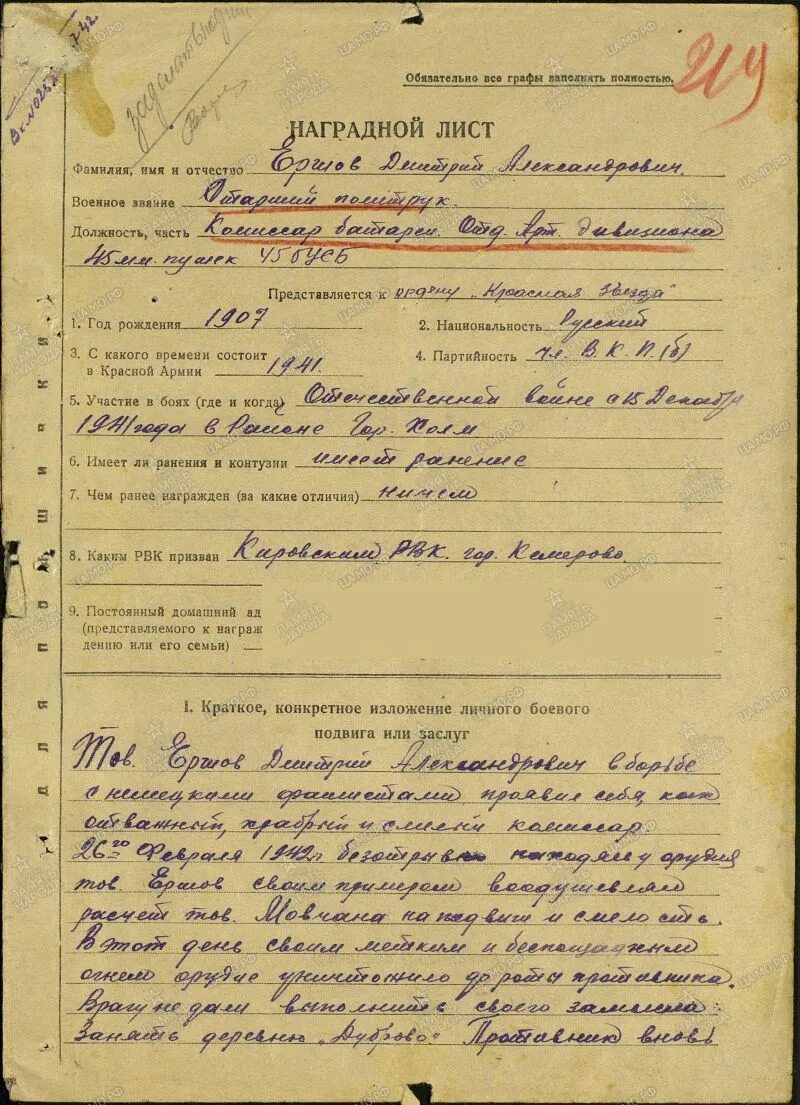 Обязательно все графы заполнять полностью.
219
НАГРАДНОЙ ЛИСТ
Фамилия, имя и отчество Ершов Дмитрий Александрович.
Военное звание Старший политрук.
Должность, часть Комиссар батареи Отд. Арт. дивизиона
45 мм. пушек 45 ОУСБ
Представляется к ордену „Красная звезда"
1. Год рождения 1907
2. Национальность Русский
3. С какого времени состоит
в Красной Армии 1941.
4. Партийность чл. В. К. П. (б)
5. Участие в боях (где и когда) Отечественной войне с 15 Декабря
1941 года в Районе Гор. Холм
6. Имеет ли ранения и контузии имеет ранение
7. Чем ранее награжден (за какие отличия) ничем
8. Каким РВК призван Кировским РВК. гор. Кемерово.
9. Постоянный домашний ад
(представляемого к награж
дению или его семьи)
I. Краткое, конкретное изложение личного боевого
подвига или заслуг
Тов. Ершов Дмитрий Александрович в борьбе
с немецкими фашистами проявил себя, как
отважный, храбрый и смелый комиссар.
26го Февраля 1942 г. безотрывно находясь у орудия
тов. Ершов своим примером воодушевлял
расчет тов. Мовчана на подвиги и смелость.
В этот день своим метким и беспощадным
огнем орудие уничтожило до роты противника.
Врагу не дали выполнить своего замысла:
Занять деревню „Дуброво". Противник вновь
ДЛЯ ПОДШИВКИ
ПАМЯТЬ НАРОДА
ЦАМО.РФ